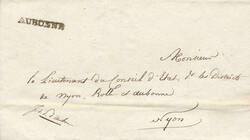 AUBONNE
Monsieur
le Lieutenant du Conseil d'Etat, des Districts
de Nyon, Rolle et aubonne
Nyon